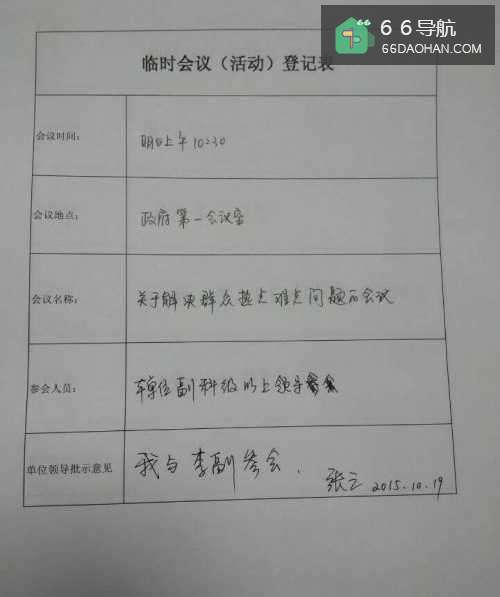 66导航
66DAOHAN.COM
临时会议（活动）登记表
会议时间：
明日上午10:30
会议地点：
政府第一会议室
会议名称：
关于解决群众热点难点问题的会议
参会人员：
单位副科级以上领导
单位领导批示意见
我与李副参会．
张三 2015.10.19